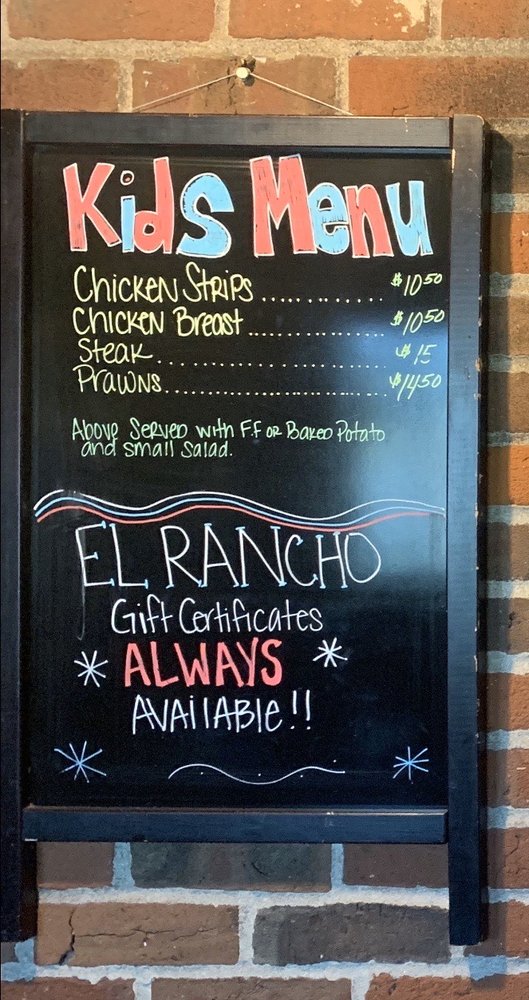 Kids Menu
Chicken Strips ............ $10.50
Chicken Breast .................. $10.50
Steak ............................ $15
Prawns ............................ $14.50
Above Served with F.F or Baked Potato
and small salad.
EL RANCHO
Gift Certificates
ALWAYS
AVAilABLE!!